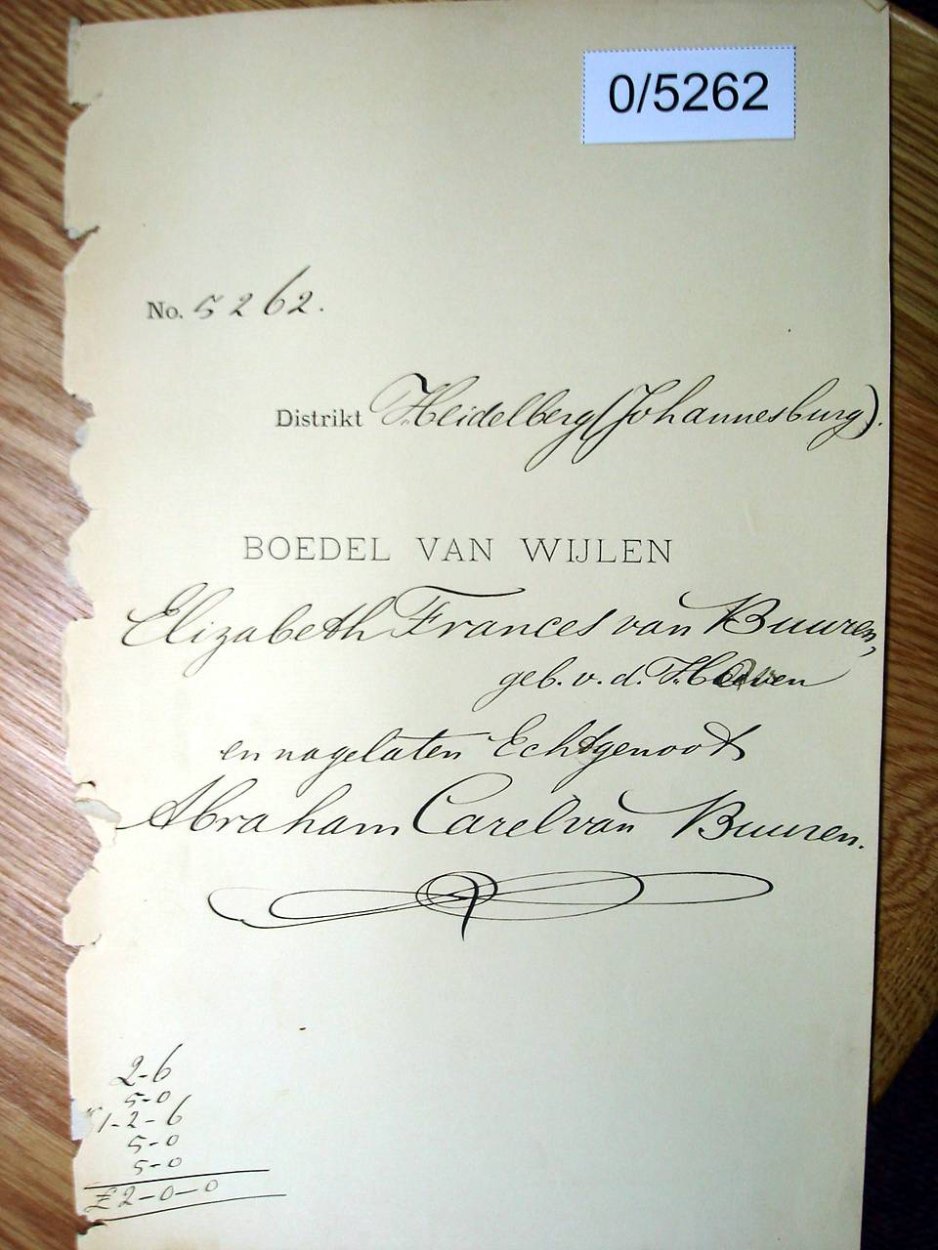 0/5262
No. 5262.
Distrikt Heidelberg (Johannesburg).
BOEDEL VAN WIJLEN
Elizabeth Frances van Buuren,
geb. v. d.
en nagelaten Echtgenoot
Abraham Carel van Buuren.
2-6
5-0
1-2-6
5-0
5-0
£2-0-0